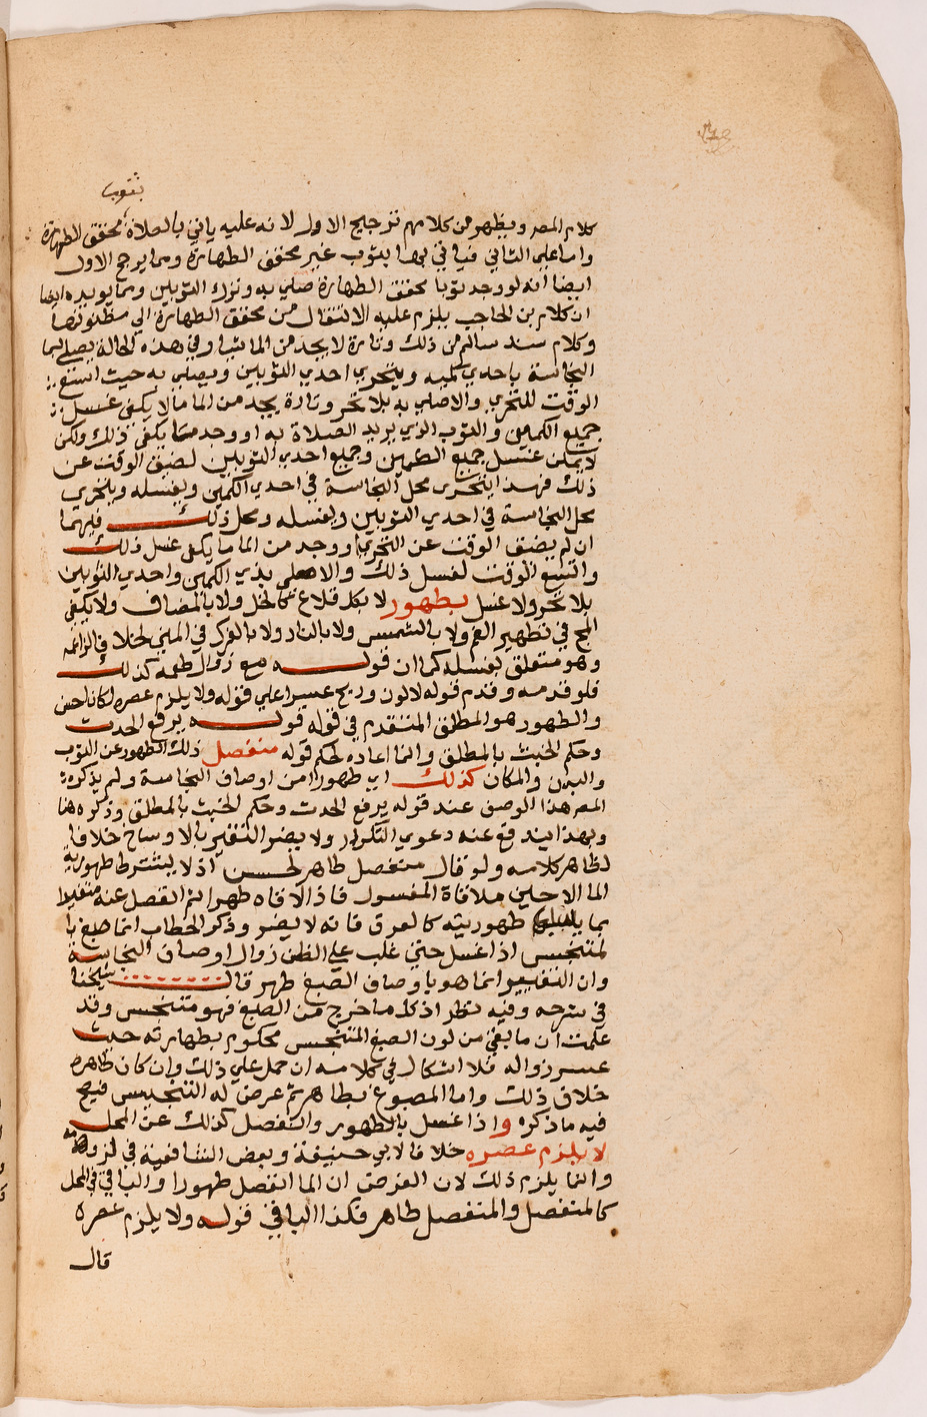 بثوب
كلام المصر ويظهر من كلامهم ترجيح الاول لانه عليه ياتي بالصلاة محقق الطهارة
واما على الثاني فياتي بها بثوب غير محقق الطهارة ومما يرجح الاول
ايضا انه لو وجد ثوبا محقق الطهارة صلي به وترك الثوبين ومما يويده ايضا
ان كلام بن الحاجب يلزم عليه الانتقال من محقق الطهارة الي مظنونها
وكلام سند سالم من ذلك وتارة لا يجد من الما شيا وفي هذه الحالة يصلي
النجاسة باحدي كميه ويتحري احدي الثوبين ويصلي به حيث اتسع
الوقت للتحري والا صلي به بلا تحر وتارة يجد من الما ما لا يكفي غسل
جميع الكمين والثوب الذي يريد الصلاة به او وجد ما يكفي ذلك ولكن
لا يمكن غسل جميع الكمين وجميع احدي الثوبين لضيق الوقت عن
ذلك فهذا يتحري محل النجاسة في احدي الكمين ويغسله ويتحري
محل النجاسة في احدي الثوبين ويغسله ومحل ذلك فيهما
ان لم يضق الوقت عن التحري او وجد من الما ما يكفي غسل ذلك
واتسع الوقت لغسل ذلك والا صلي بذي الكمين واحدي الثوبين
بلا تحر ولا غسل بطهور لا بكقلاع كالخل ولا بالمضاف ولا يكفي
المج في تطهير الفم ولا بالشمس ولا بالنار ولا بالفرك في المني خلافا لزاعمه
وهو متعلق بغسله كما ان قوله مع زوال طعمه كذلك
فلو قدمه وقدم قوله لا لون وريح عسرا علي قوله ولا يلزم عصره لكان احسن
والطهور هو المطلق المتقدم في قوله يرفع الحدث
وحكم الخبث بالمطلق وانما اعاده لحكم قوله منفصل ذلك الطهور عن الثوب
والبدن والمكان كذلك اي طهورا من اوصاف النجاسة ولم يذكره
المصر هذا الوصف عند قوله يرفع الحدث وحكم الخبث بالمطلق وذكره هنا
وبهذا يندفع عنه دعوي التكرار ولا يضر التغير بالاوساخ خلافا
لظاهر كلامه ولو قال منفصل طاهر لحسن اذ لا يشترط طهورية
الما الا حين ملاقاة المغسول فاذا لاقاه طهرا ثم انفصل عنه متغيرا
بما طهوريته كالعرق فانه لا يضر وذكر الحطاب انما صبغ با
لمتنجس اذا غسل حتي غلب علي الظن زوال اوصاف النجاسة
وان التغيير انما هو باوصاف الصبغ طهر قال شيخنا
في شرحه وفيه نظر اذ كلما خرج من الصبغ فهو متنجس وقد
علمت ان ما بقي من لون الصبغ المتنجس محكوم بطهارته حيث
عسر زواله فلا اشكال في كلامه ان حمل علي ذلك وان كان ظاهره
خلاف ذلك واما المصبوغ بطاهر ثم عرض له التنجيس فيصح
فيه ما ذكره واذا غسل بالطهور وانفصل كذلك عن المحل
لا يلزم عصره خلافا لابي حنيفة وبعض الشافعية في لزومه
وانما يلزم ذلك لان الفرض ان الما انفصل طهورا والباقي في المحل
كالمنفصل والمنفصل طاهر فكذا الباقي قوله ولا يلزم عصره
قال